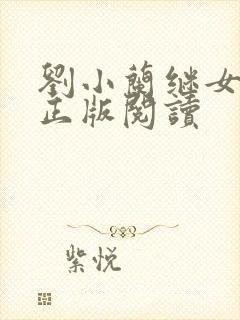 劉小蘭继女
正版閱讀
紫悦